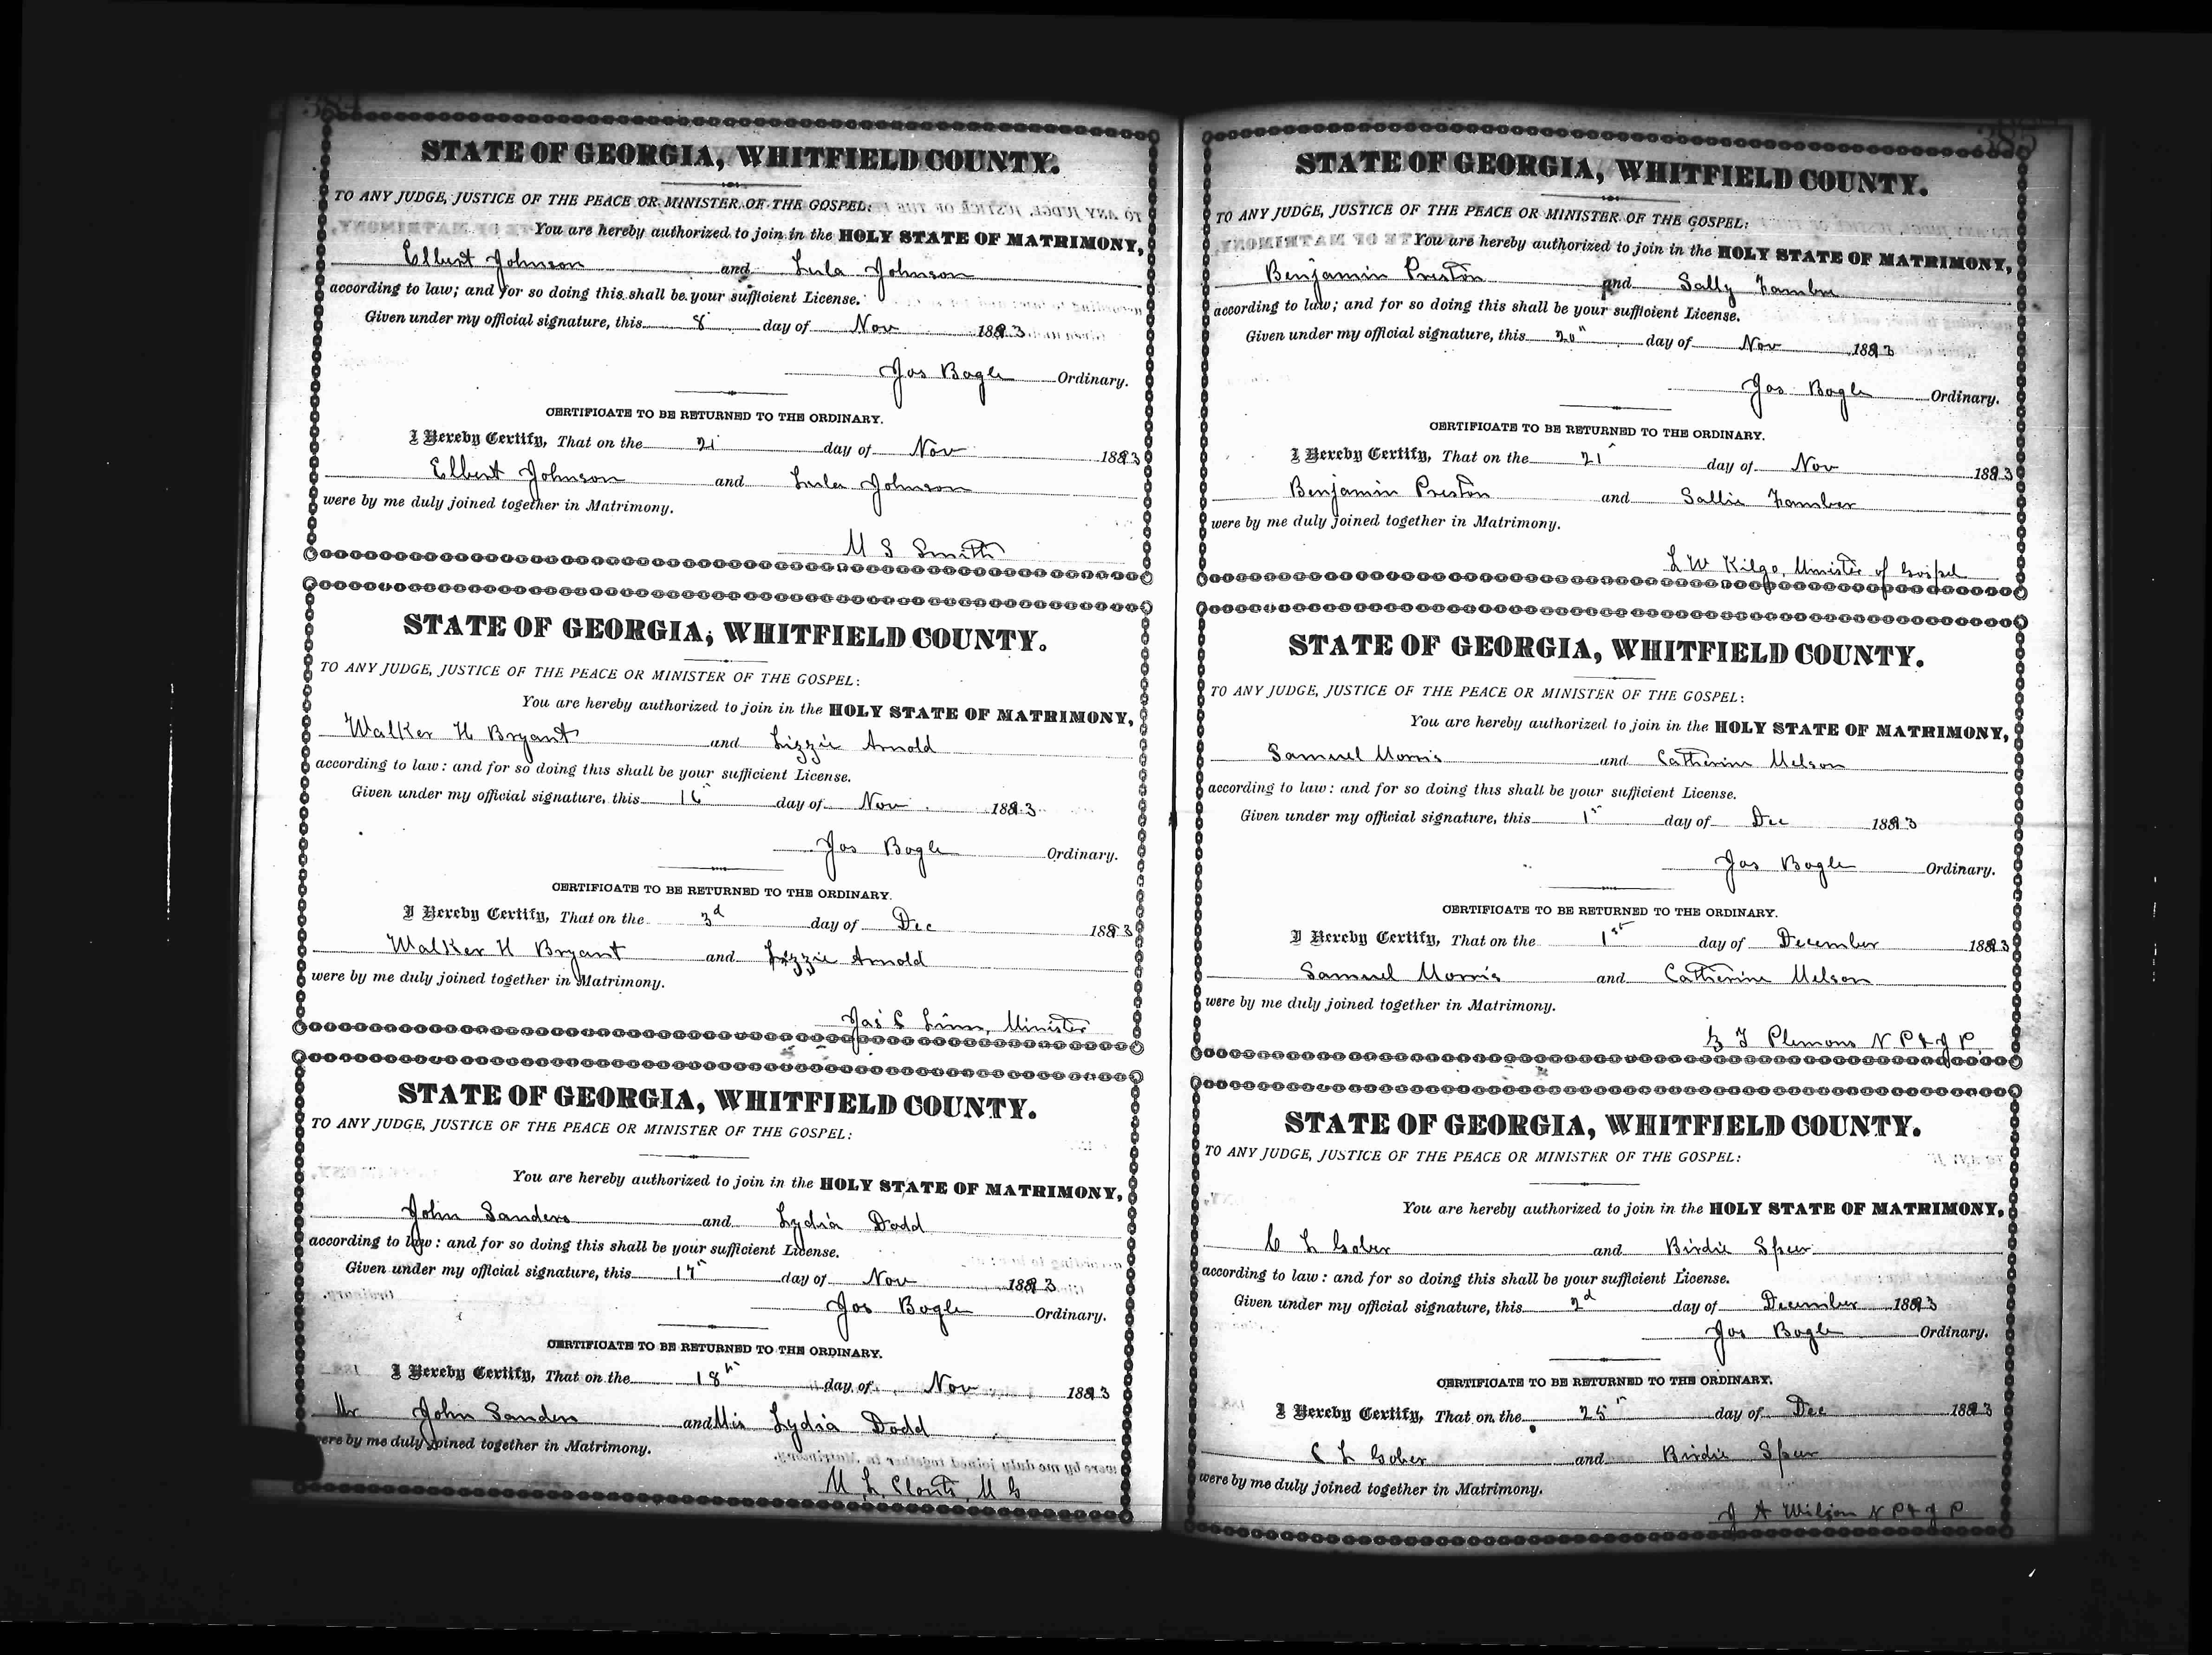 384
STATE OF GEORGIA, WHITFIELD COUNTY.
TO ANY JUDGE, JUSTICE OF THE PEACE OR MINISTER OF THE GOSPEL:
You are hereby authorized to join in the HOLY STATE OF MATRIMONY,
Elbert Johnson and Lula Johnson
according to law; and for so doing this shall be your sufficient License.
Given under my official signature, this 8 day of Nov 1893
Jos Bogle Ordinary.
CERTIFICATE TO BE RETURNED TO THE ORDINARY.
I Hereby Certify, That on the 21 day of Nov 1893
Elbert Johnson and Lula Johnson
were by me duly joined together in Matrimony.
M S Smith
STATE OF GEORGIA, WHITFIELD COUNTY.
TO ANY JUDGE, JUSTICE OF THE PEACE OR MINISTER OF THE GOSPEL:
You are hereby authorized to join in the HOLY STATE OF MATRIMONY,
Walker H Bryant and Lizzie Arnold
according to law: and for so doing this shall be your sufficient License.
Given under my official signature, this 16 day of Nov 1893
Jos Bogle Ordinary.
CERTIFICATE TO BE RETURNED TO THE ORDINARY.
I Hereby Certify, That on the 3d day of Dec 1893
Walker H Bryant and Lizzie Arnold
were by me duly joined together in Matrimony.
Minister
STATE OF GEORGIA, WHITFIELD COUNTY.
TO ANY JUDGE, JUSTICE OF THE PEACE OR MINISTER OF THE GOSPEL:
You are hereby authorized to join in the HOLY STATE OF MATRIMONY,
John Sanders and Lydia Dodd
according to law: and for so doing this shall be your sufficient License.
Given under my official signature, this 17 day of Nov 1893
Jos Bogle Ordinary.
CERTIFICATE TO BE RETURNED TO THE ORDINARY.
I Hereby Certify, That on the 18th day of Nov 1893
Mr John Sanders and Mis Lydia Dodd
were by me duly joined together in Matrimony.
M. L. Clonts, M G
385
STATE OF GEORGIA, WHITFIELD COUNTY.
TO ANY JUDGE, JUSTICE OF THE PEACE OR MINISTER OF THE GOSPEL:
You are hereby authorized to join in the HOLY STATE OF MATRIMONY,
Benjamin Preston and Sally
according to law; and for so doing this shall be your sufficient License.
Given under my official signature, this 20" day of Nov 1893
Jos Bogle Ordinary.
CERTIFICATE TO BE RETURNED TO THE ORDINARY.
I Hereby Certify, That on the 21 day of Nov 1893
Benjamin Preston and Sallie
were by me duly joined together in Matrimony.
L W Kilgo, Minister of Gospel
STATE OF GEORGIA, WHITFIELD COUNTY.
TO ANY JUDGE, JUSTICE OF THE PEACE OR MINISTER OF THE GOSPEL:
You are hereby authorized to join in the HOLY STATE OF MATRIMONY,
Samuel Morris and Catherine Melson
according to law: and for so doing this shall be your sufficient License.
Given under my official signature, this 1st day of Dec 1893
Jos Bogle Ordinary.
CERTIFICATE TO BE RETURNED TO THE ORDINARY.
I Hereby Certify, That on the 1st day of December 1893
Samuel Morris and Catherine Melson
were by me duly joined together in Matrimony.
Plemons N P & J P.
STATE OF GEORGIA, WHITFIELD COUNTY.
TO ANY JUDGE, JUSTICE OF THE PEACE OR MINISTER OF THE GOSPEL:
You are hereby authorized to join in the HOLY STATE OF MATRIMONY,
C L Gober and Birdie Speer
according to law: and for so doing this shall be your sufficient License.
Given under my official signature, this 2d day of December 1893
Jos Bogle Ordinary.
CERTIFICATE TO BE RETURNED TO THE ORDINARY.
I Hereby Certify, That on the 25 day of Dec 1893
C L Gober and Birdie Speer
were by me duly joined together in Matrimony.
J A Wilson N P & J P